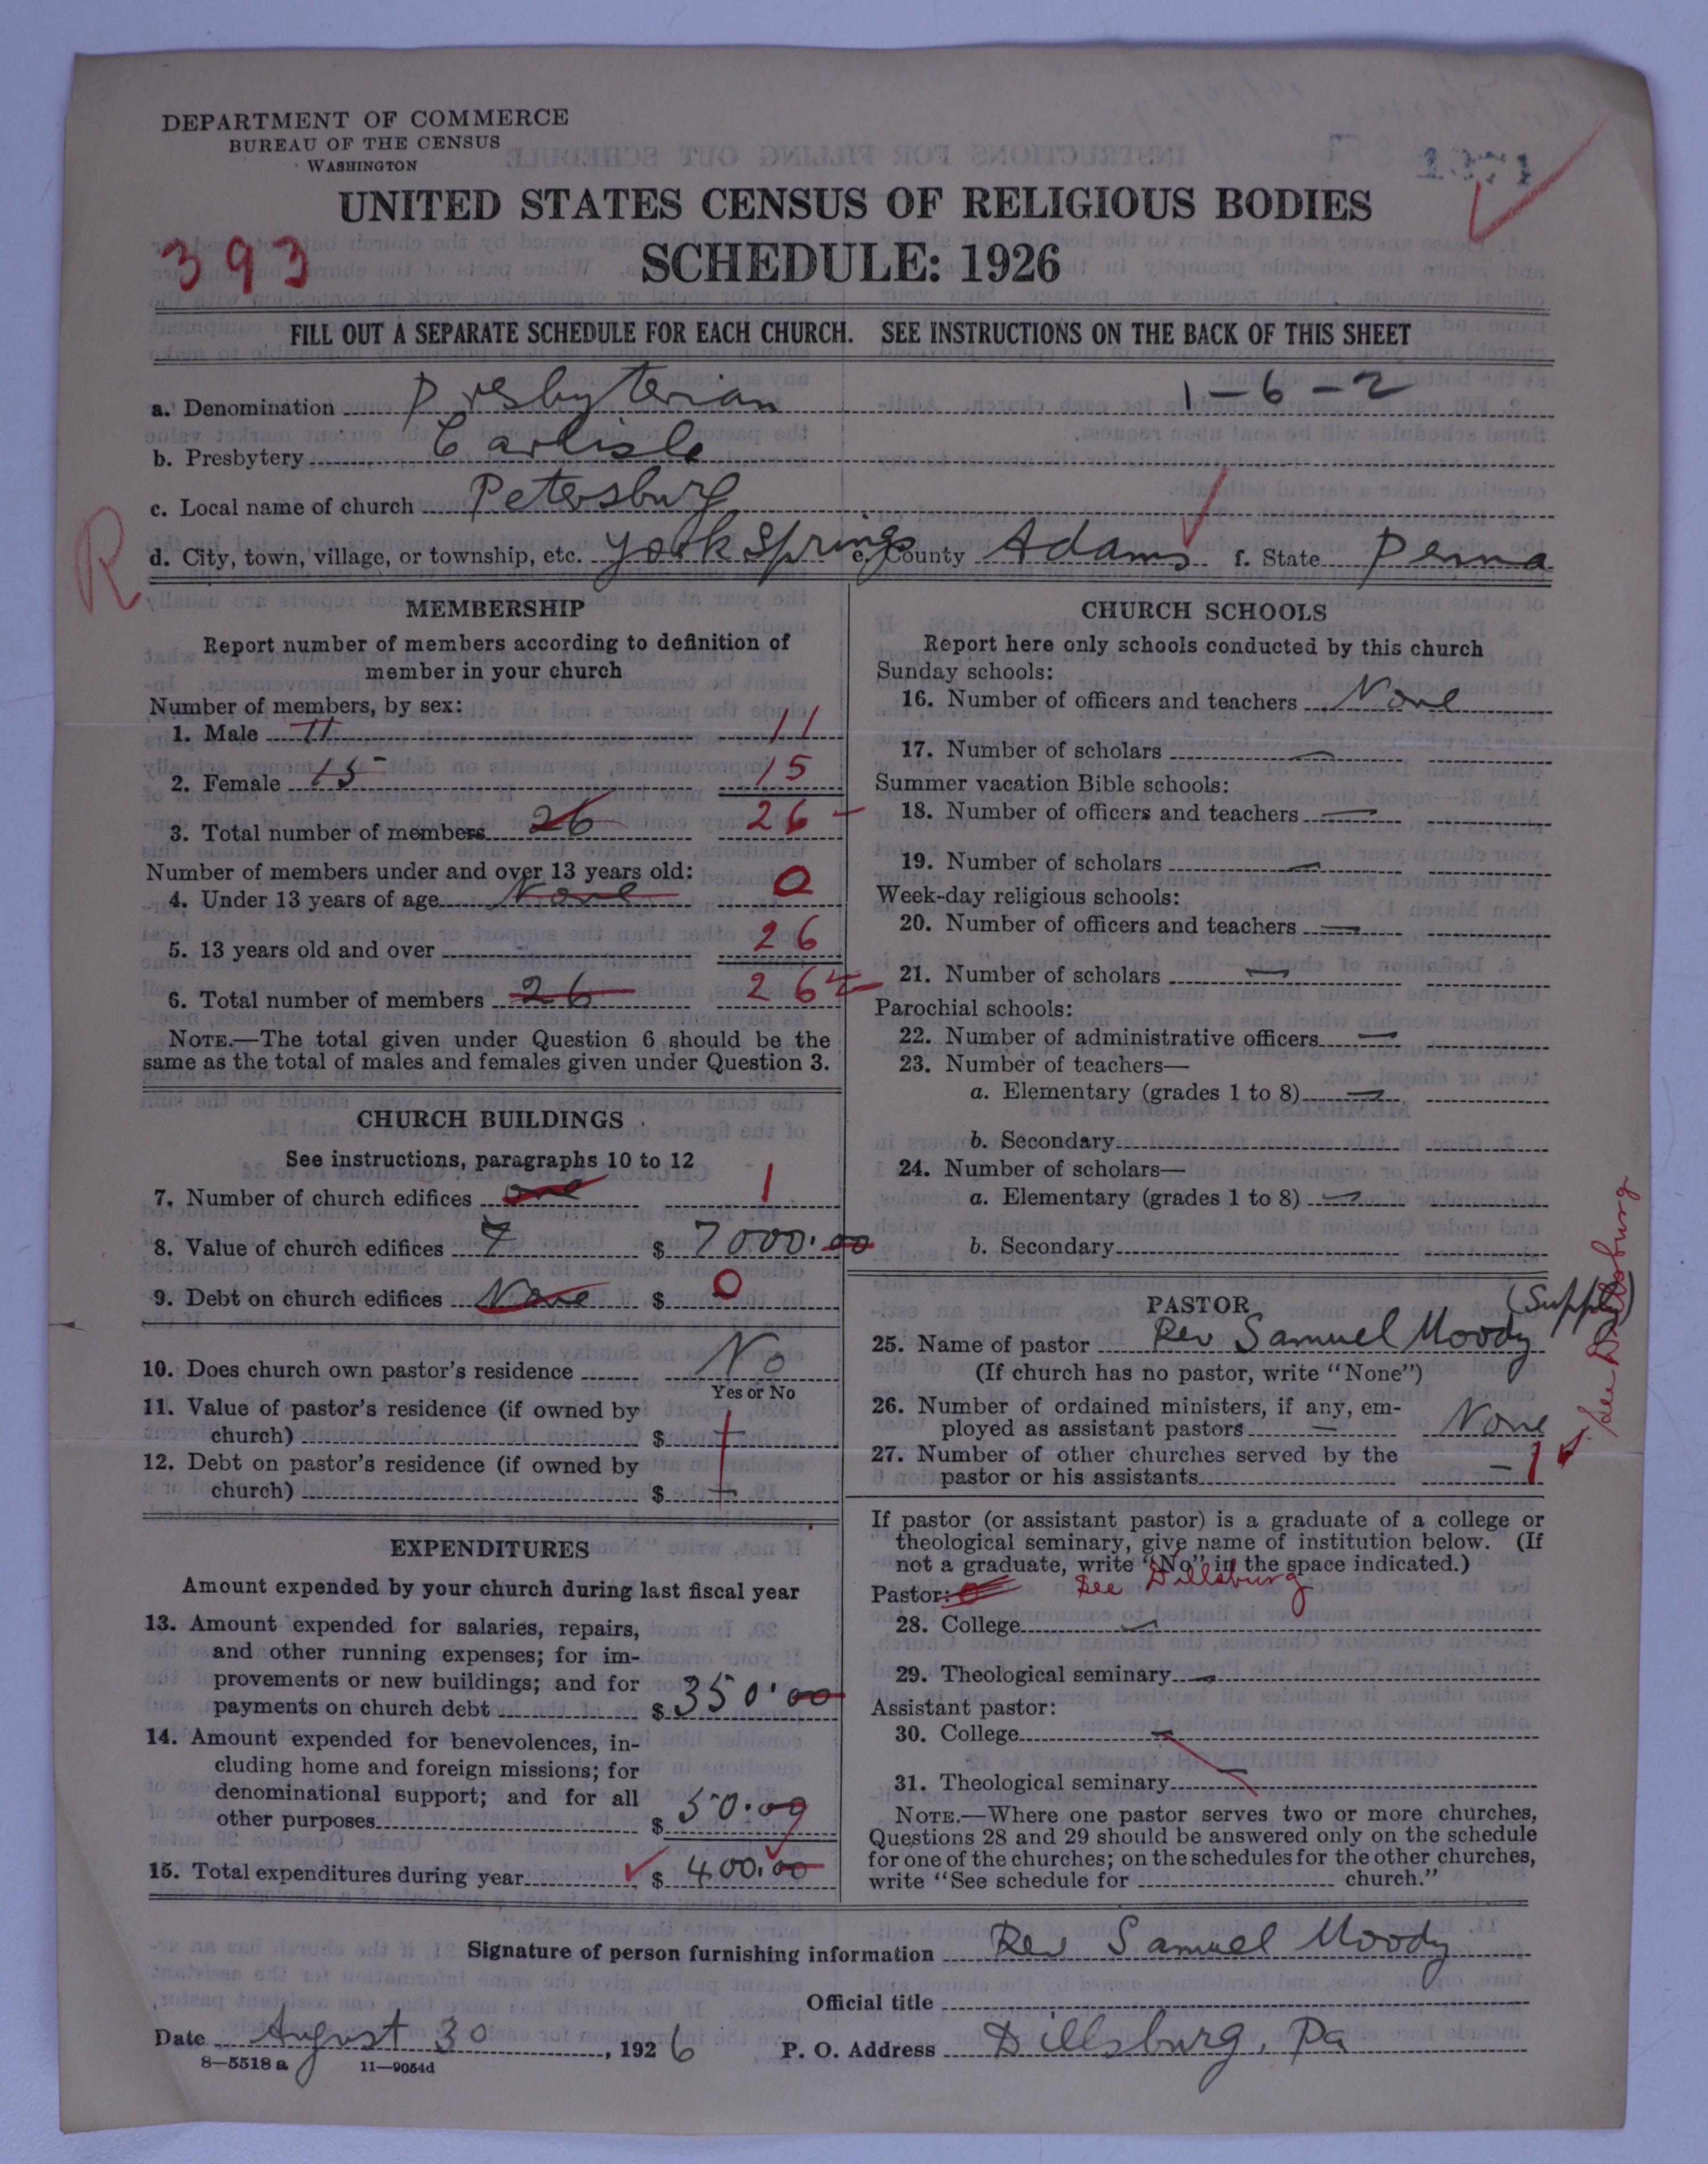 DEPARTMENT OF COMMERCE
BUREAU OF THE CENSUS
WASHINGTON
UNITED STATES CENSUS OF RELIGIOUS BODIES
393
SCHEDULE: 1926
FILL OUT A SEPARATE SCHEDULE FOR EACH CHURCH. SEE INSTRUCTIONS ON THE BACK OF THIS SHEET
a. Denomination Presbyterian 1-6-2
b. Presbytery Carlisle
c. Local name of church Petersburg
R
d. City, town, village, or township, etc. York Springs e. County Adams f. State Penna
MEMBERSHIP
Report number of members according to definition of
member in your church
Number of members, by sex:
1. Male 11 11
2. Female 15 15
3. Total number of members 26 26
Number of members under and over 13 years old:
4. Under 13 years of age None 0
5. 13 years old and over 26
6. Total number of members 26 26
NOTE.—The total given under Question 6 should be the
same as the total of males and females given under Question 3.
CHURCH BUILDINGS
See instructions, paragraphs 10 to 12
7. Number of church edifices one 1
8. Value of church edifices 7 $ 7000.00
9. Debt on church edifices None $ 0
10. Does church own pastor's residence No
Yes or No
11. Value of pastor's residence (if owned by
church) $
12. Debt on pastor's residence (if owned by
church) $
EXPENDITURES
Amount expended by your church during last fiscal year
13. Amount expended for salaries, repairs,
and other running expenses; for im-
provements or new buildings; and for
payments on church debt $ 350.00
14. Amount expended for benevolences, in-
cluding home and foreign missions; for
denominational support; and for all
other purposes $ 50.00
15. Total expenditures during year $ 400.00
CHURCH SCHOOLS
Report here only schools conducted by this church
Sunday schools:
16. Number of officers and teachers None
17. Number of scholars —
Summer vacation Bible schools:
18. Number of officers and teachers —
19. Number of scholars —
Week-day religious schools:
20. Number of officers and teachers —
21. Number of scholars —
Parochial schools:
22. Number of administrative officers —
23. Number of teachers—
a. Elementary (grades 1 to 8) —
b. Secondary
24. Number of scholars—
a. Elementary (grades 1 to 8) —
b. Secondary
PASTOR (Supply)
25. Name of pastor Rev Samuel Moody
(If church has no pastor, write "None")
26. Number of ordained ministers, if any, em-
ployed as assistant pastors — None
27. Number of other churches served by the
pastor or his assistants — 1
See Dillsburg
If pastor (or assistant pastor) is a graduate of a college or
theological seminary, give name of institution below. (If
not a graduate, write "No" in the space indicated.)
Pastor: See Dillsburg
28. College —
29. Theological seminary —
Assistant pastor:
30. College —
31. Theological seminary —
NOTE.—Where one pastor serves two or more churches,
Questions 28 and 29 should be answered only on the schedule
for one of the churches; on the schedules for the other churches,
write "See schedule for church."
Signature of person furnishing information Rev Samuel Moody
Official title
Date August 30, 1926 P. O. Address Dillsburg, Pa
8—5518 a 11—9054d